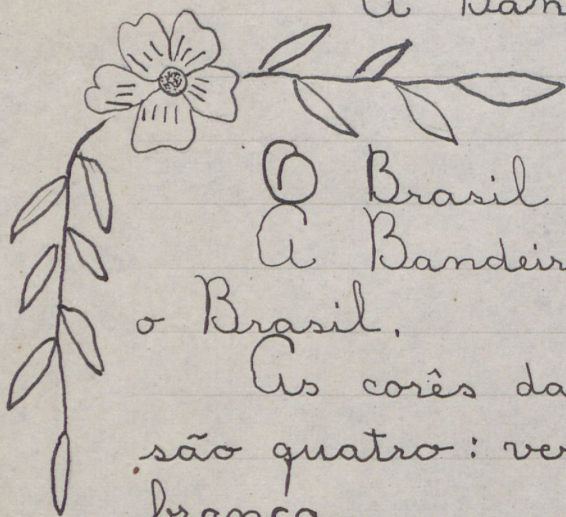 A Ban
O Brasil
A Bandeir
o Brasil.
As corês da
são quatro: ver
branca